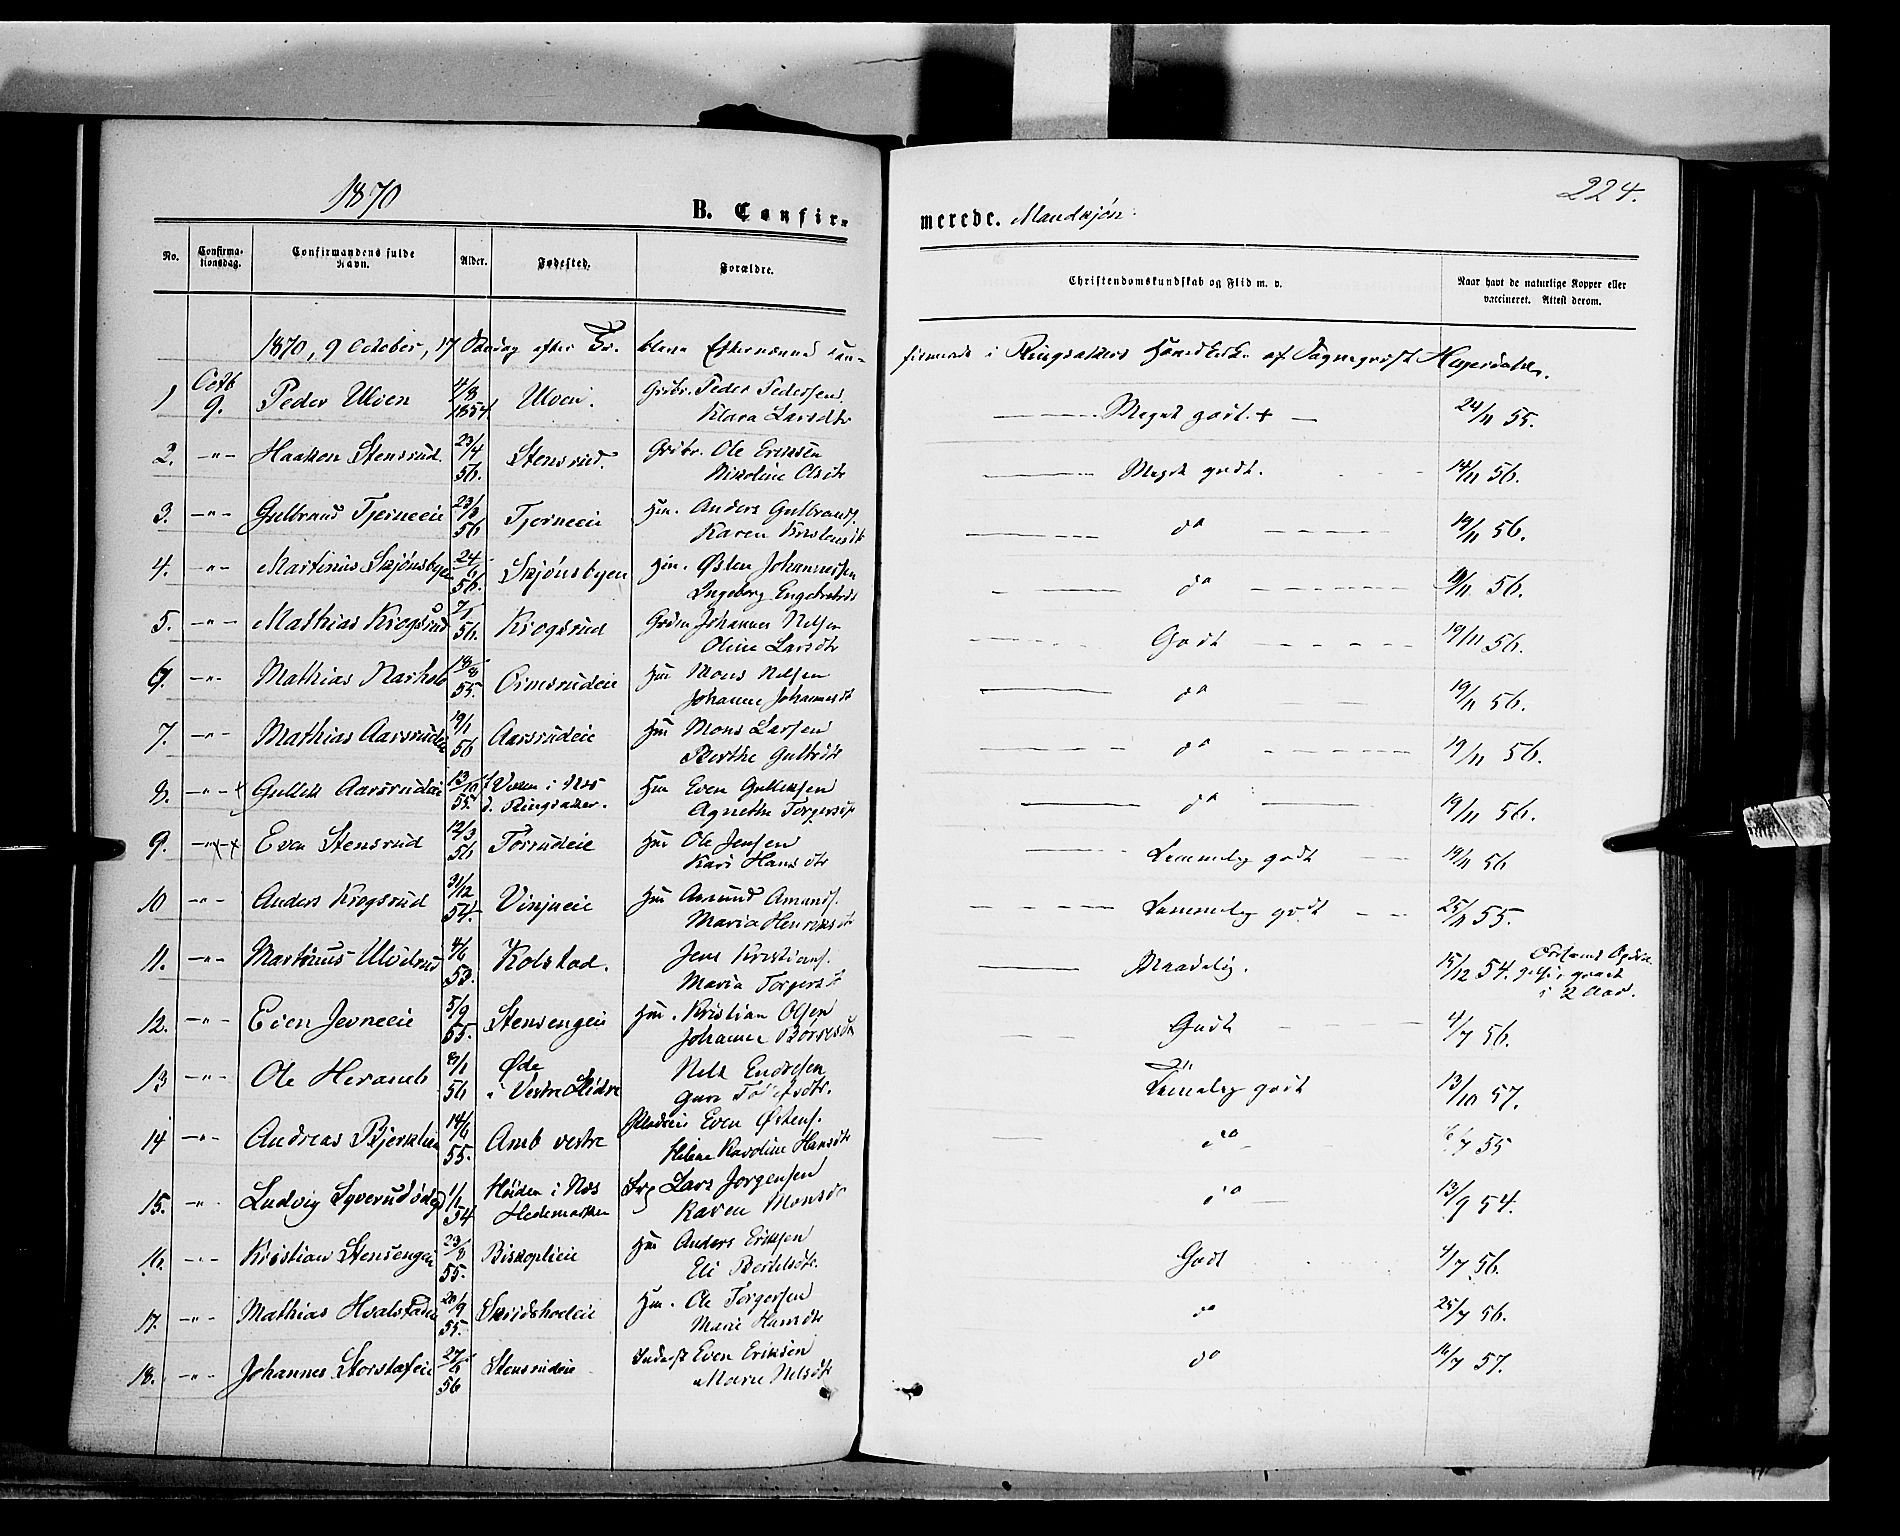 1870
B. Confir-
merede. Mandkjøn.
224.
No.
Confirma-
tionsdag.
Confirmandens fulde
Navn.
Alder.
Fødested.
Forældre.
Christendomskundskab og Flid m. v.
Naar havt de naturlige Kopper eller
vaccineret. Attest derom.
1870, 9 October, 17 Søndag efter Tr. bleve Efternævnte con-
firmerede i Ringsakers Hovedkirke af Sogneprest Heyerdahl.
1 Octb 9. Peder Ulven 4/8 1854 Ulven. Gbr. Peder Pedersen
Klara Larsdtr
Meget godt. + 24/11 55.
2. -"- Haaken Stensrud. 23/4 56. Stensrud. Gbr. Ole Eriksen
Nikoline Olsdtr
Meget godt. 14/11 56.
3. -"- Gulbrand Tjerneeie 56 Tjerneeie Hm. Anders Gulbrands.
Karen Kristensdtr
do 19/11 56.
4. -"- Martinus Skjønsbyen 24/6 56. Skjønsbyen Hm. Østen Johannessen
Ingeborg Engebretsdtr
do 19/11 56.
5. -"- Mathias Krogsrud 7/1 56. Krogsrud Johannes Nelsen
Oline Larsdtr
Godt 19/11 56.
6. -"- Mathias Narhol 18/8 55. Ormsrudeie Hm Mons Nelsen
Johanne Johannesdtr
do 19/11 56.
7. -"- Mathias Aarsrudeie 19/1 56 Aarsrudeie Hm Mons Larsen
Berthe Gulbrdtr
do 19/11 56.
8. -"- + Gullek Aarsrudeie 13/10 55. i Næs
Ringsaker. Hm Even Gulleksen
Agnethe Torgersdtr
do 19/11 56.
9. -"- Even Stensrud 12/3 56 Torrudeie Hm Ole Jensen
Kari Hansdtr
Temmelig godt 19/11 56
10 -"- Anders Krogsrud 31/12 54. Vinjueie Hm Amund Amunds.
Maria Henriksdtr
Temmelig godt 25/11 55.
11. -"- Martinus Ulvilrud 4/6 53. Kolstad. Jens Kristians.
Maria Torgersdtr
Maadelig. 15/12 54.
i 2 Aar.
12. -"- Even Jevneeie 5/9 55. Stensengeie Hm. Kristian Olsen
Johanne
Godt 4/7 56.
13 -"- Ole Heranes 56 Øde
i Vestre Slidre Nels Endresen
Temmelig godt 13/10 57.
14 -"- Andreas Bjerklien 14/6 55. Amb vestre Even Østens.
Helene Karoline Hansdtr
do 55
15. -"- Ludvig 1/1 54 Høiden i Næs
Hedemarken Lars Jørgensen
Karen Monsdtr
do 13/9 54.
16. -"- Kristian Stensengeie 23/8 55. Biskoplieie Hm Anders Eriksen
Eli Bertelsdtr.
Godt 4/7 56.
17. -"- Mathias Hvalstadeie 20/9 55. Skridshoeleie Hm. Ole Torgersen
Marie Hansdtr
do 25/7 56.
18. -"- Johannes Storstafeie 27/6 56 Stensrudeie Inderst Even Eriksen
Marie Nelsdtr
do 16/7 57.